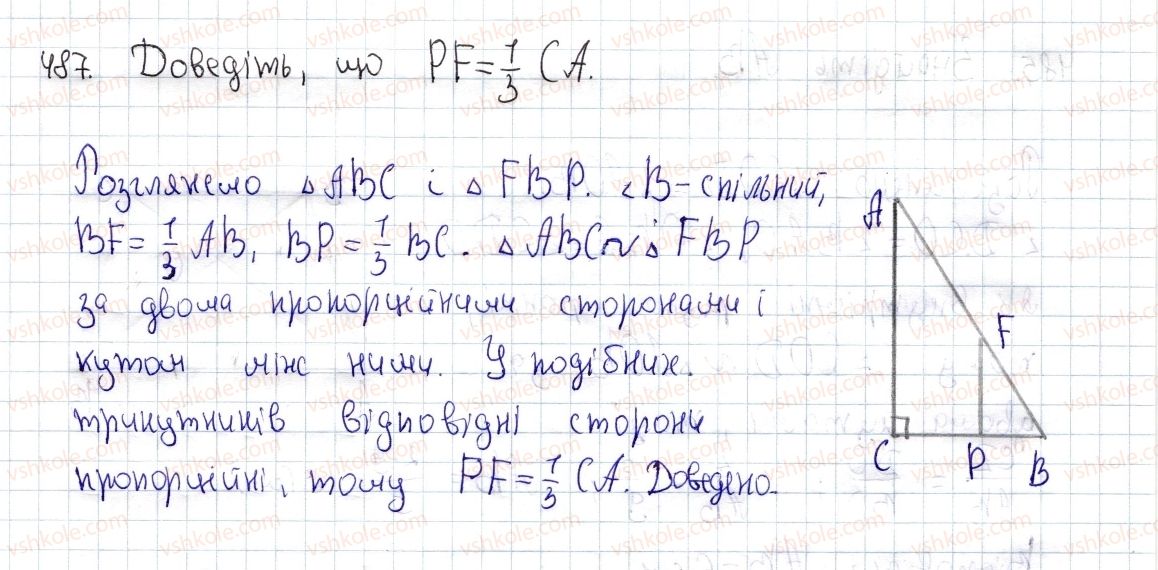 487. Доведіть, що PF = 1/3 CA.
Розглянемо △ABC і △FBP. ∠B – спільний,
BF = 1/3 AB, BP = 1/3 BC. △ABC ~ △FBP
за двома пропорційними сторонами і
кутом між ними. У подібних.
трикутників відповідні сторони
пропорційні, тому PF = 1/3 CA. Доведено.
A
F
C P B
vshkole.com